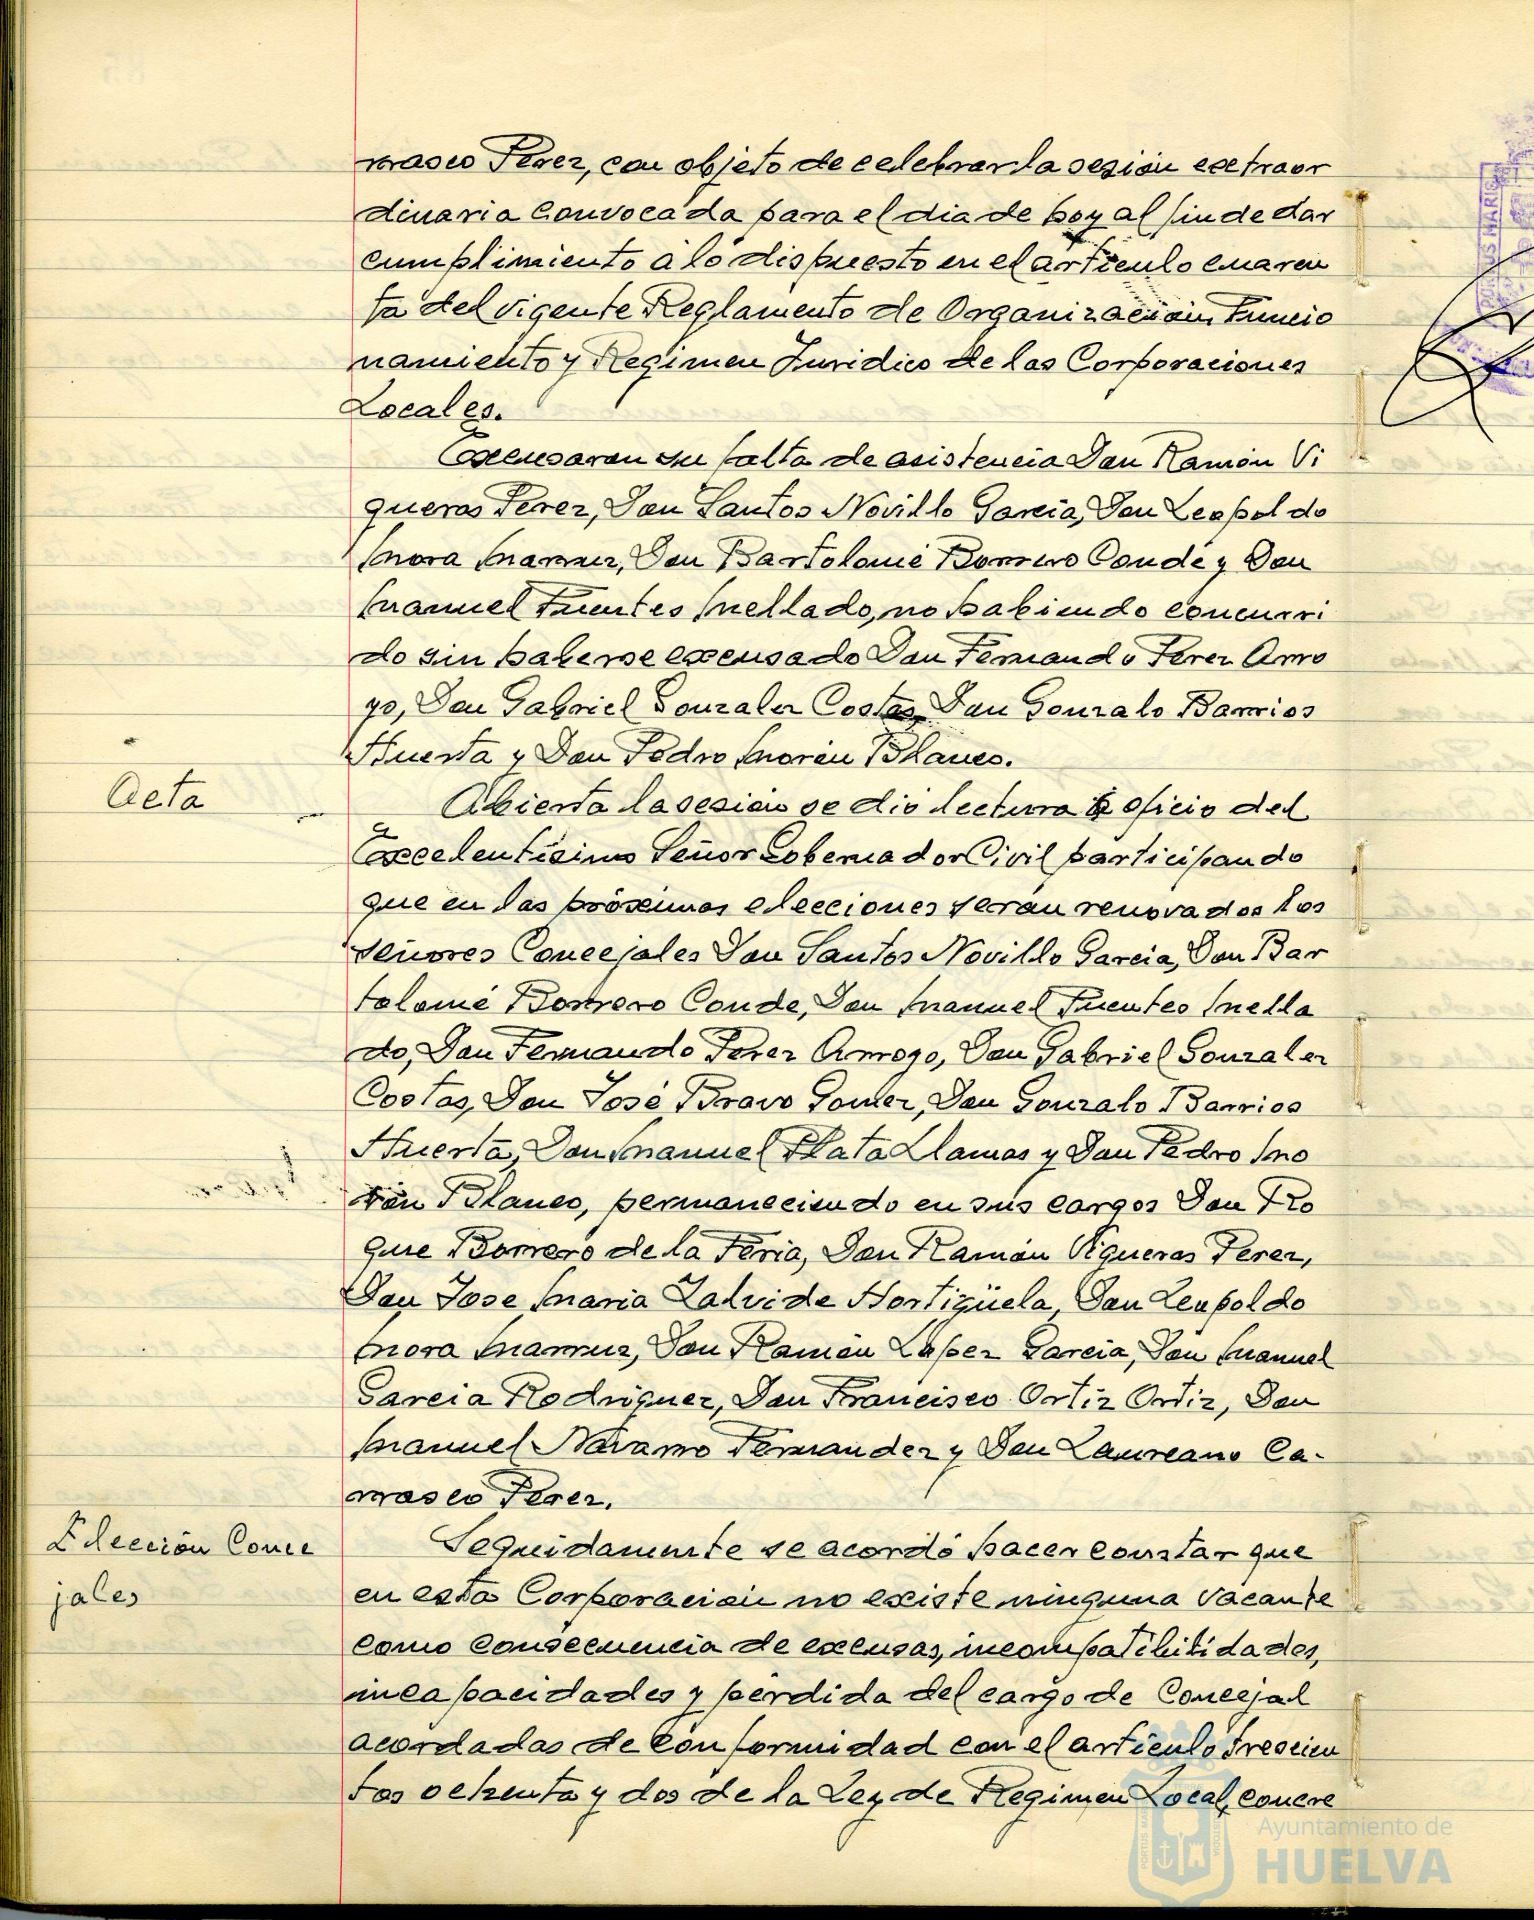 rrasco Perez, con objeto de celebrar la sesión extraor
dinaria convocada para el dia de hoy al fin de dar
cumplimiento a lo dispuesto en el articulo cuaren
ta del vigente Reglamento de Organización, Funcio
namiento y Regimen Juridico de las Corporaciones
Locales.
Excusaron su falta de asistencia Don Ramón Vi
gueras Perez, Don Santos Novillo Garcia, Don Leopoldo
Mora Marruz, Don Bartolomé Borrero Conde y Don
Manuel Fuentes Mellado, no habiendo concurri
do sin haberse excusado Don Fernando Perez Arro
yo, Don Gabriel Gonzalez Costas, Don Gonzalo Barrios
Huerta y Don Pedro Morón Blanco.
Acta
Abierta la sesión se dió lectura oficio del
Excelentísimo Señor Gobernador Civil participando
que en las próximas elecciones serán renovados los
señores Concejales Don Santos Novillo Garcia, Don Bar
tolomé Borrero Conde, Don Manuel Fuentes Mella
do, Don Fernando Perez Arroyo, Don Gabriel Gonzalez
Costas, Don José Bravo Gomez, Don Gonzalo Barrios
Huerta, Don Manuel Plata Llamas y Don Pedro Mo
rón Blanco, permaneciendo en sus cargos Don Ro
que Borrero de la Feria, Don Ramón Vigueras Perez,
Don Jose Maria Zalvide Hortigüela, Don Leopoldo
Mora Marruz, Don Ramón López Garcia, Don Manuel
Garcia Rodriguez, Don Francisco Ortiz Ortiz, Don
Manuel Navarro Fernandez y Don Laureano Ca-
rrasco Perez.
Elección Conce
jales
Seguidamente se acordó hacer constar que
en esta Corporación no existe ninguna vacante
como consecuencia de excusas, incompatibilidades,
incapacidades y perdida del cargo de Concejal
acordadas de conformidad con el artículo trescien
tos ochenta y dos de la Ley de Regimen Local, concre
Ayuntamiento de
HUELVA